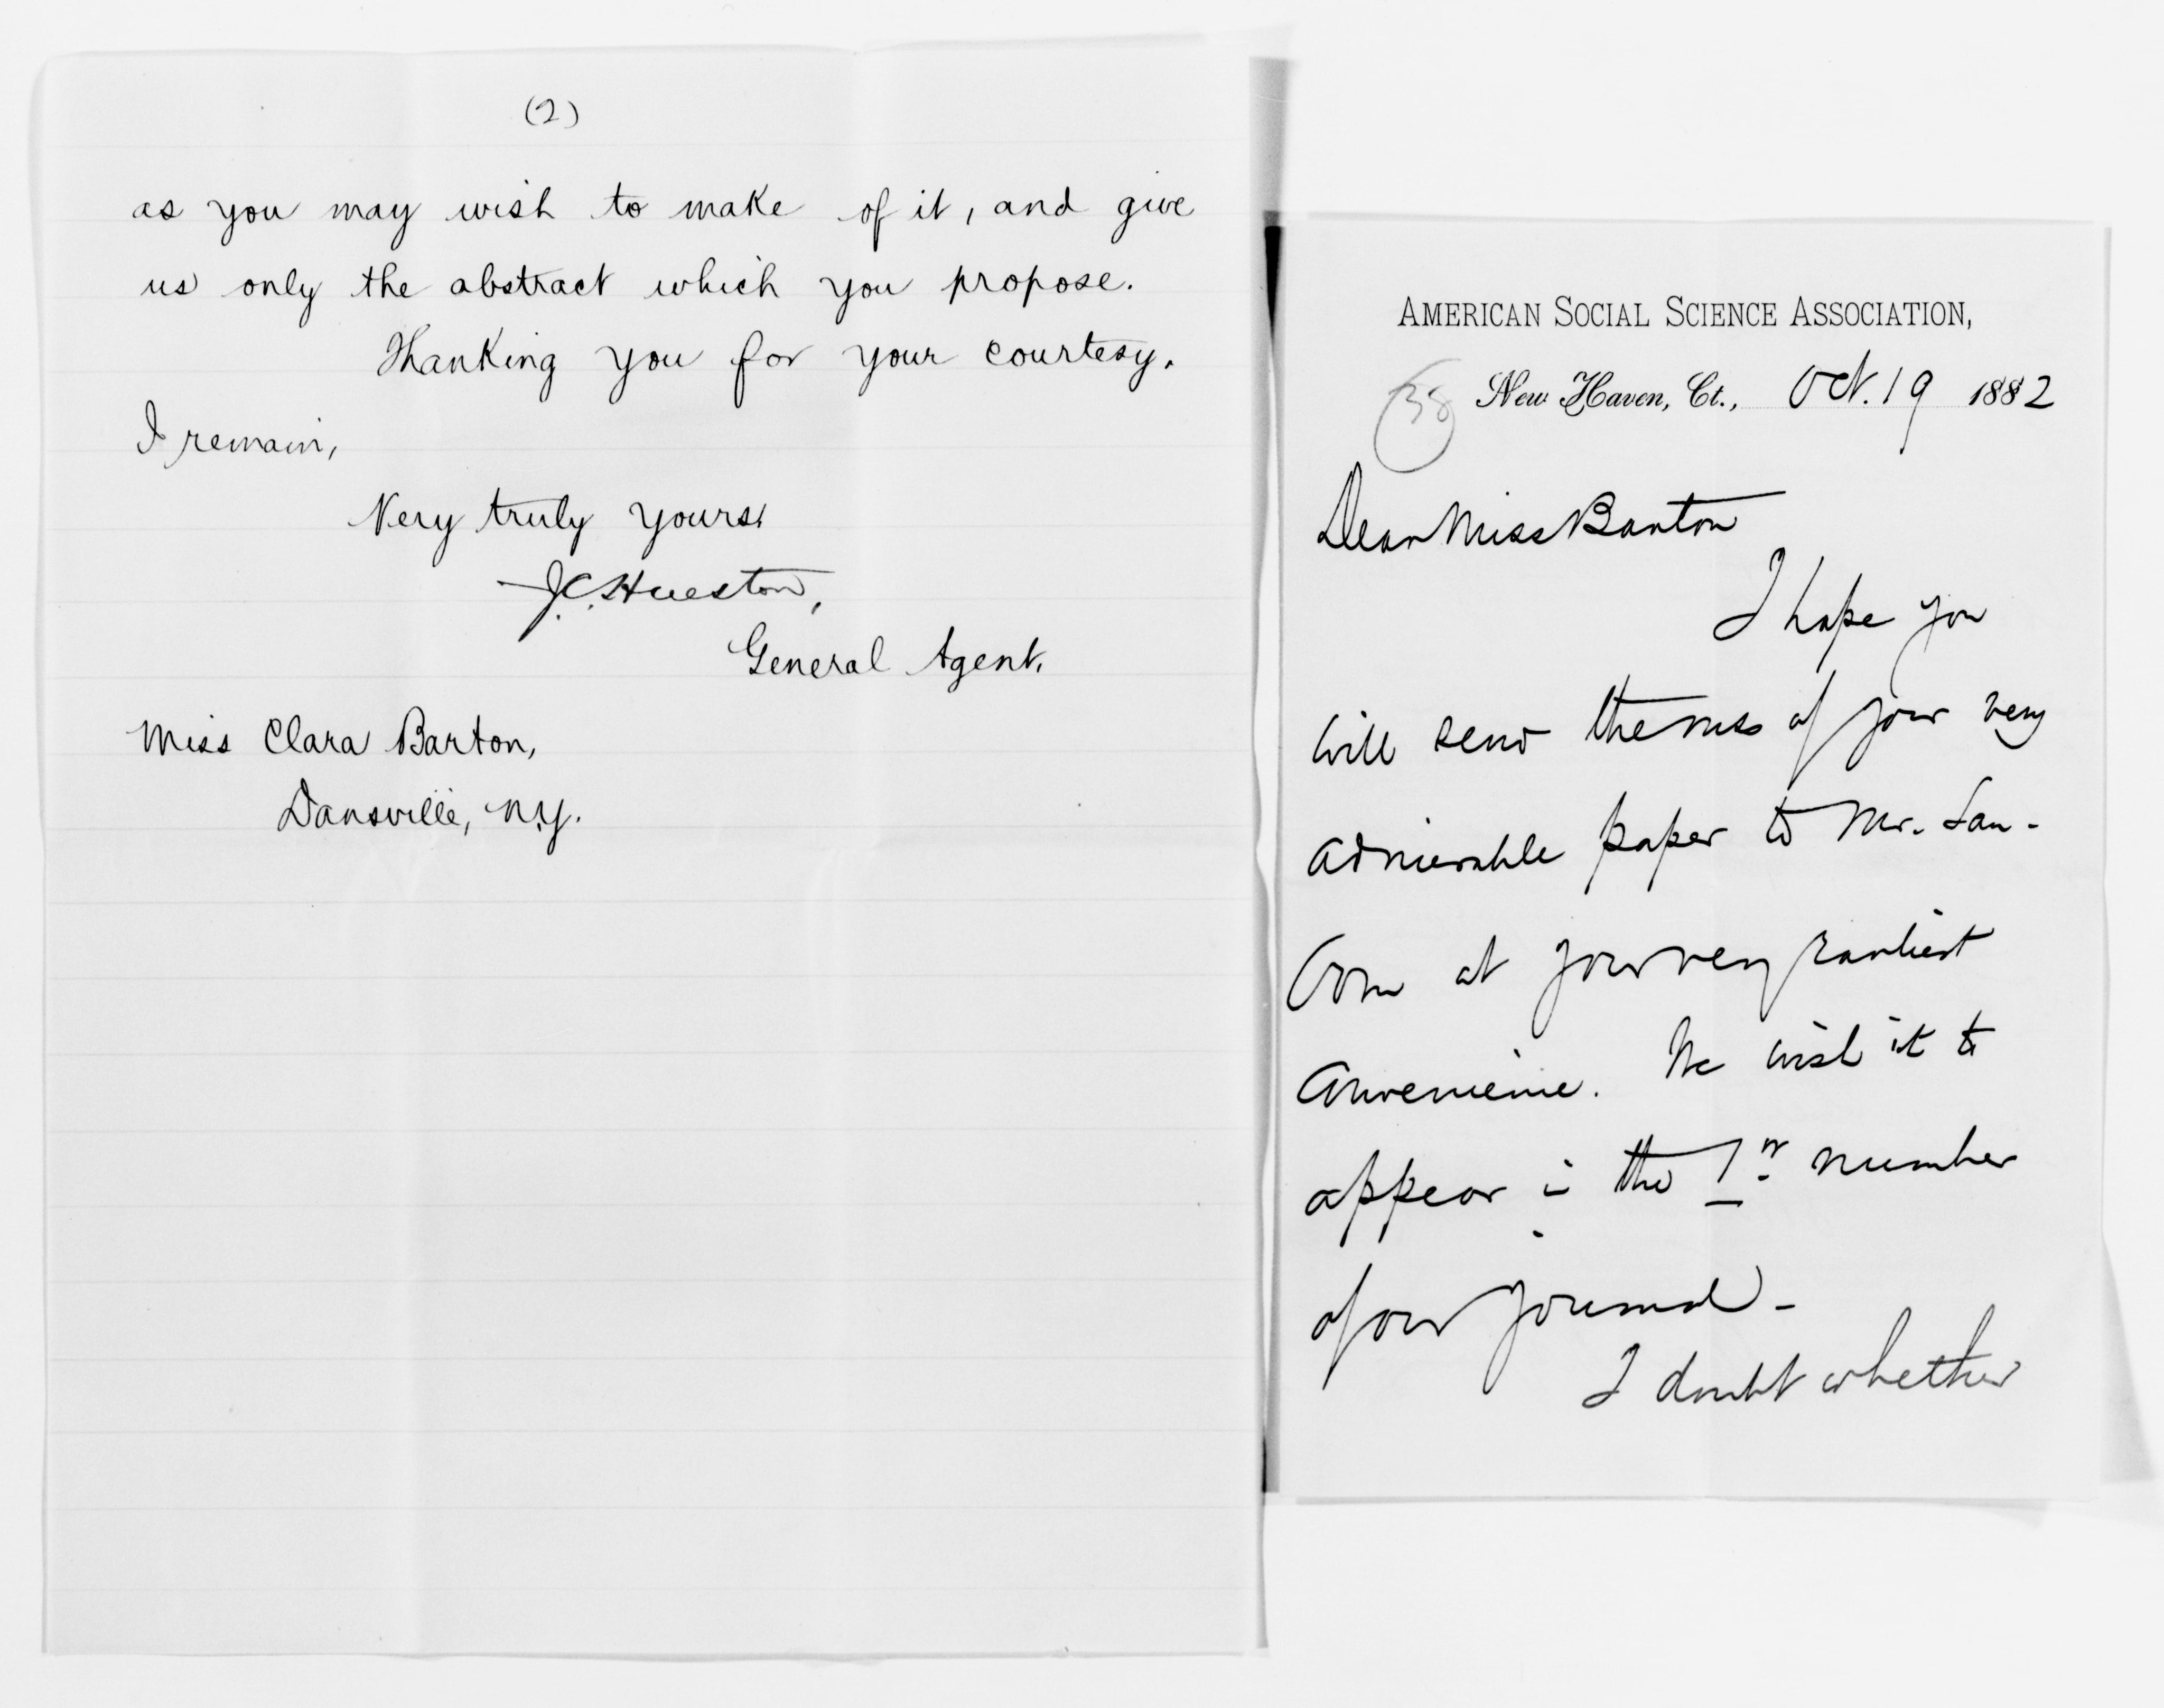 (2)
as you may wish to make of it, and give
us only the abstract which you propose.
Thanking you for your courtesy.
I remain,
Very truly yours,
J.C. Hueston,
General Agent.
Miss Clara Barton,
Dansville, N.Y.
AMERICAN SOCIAL SCIENCE ASSOCIATION,
38
New Haven, Ct., Oct. 19 1882
Dear Miss Barton
I hope you
will send the mss of your very
admirable paper to Mr. San-
born at your very earliest
convenience. We wish it to
appear in the 1st number
of our journal -
I doubt whether